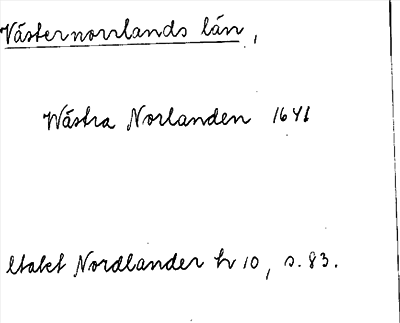 Västernorrlands län,
Wästra Norlanden 1646
Nordlander h 10, s. 83.